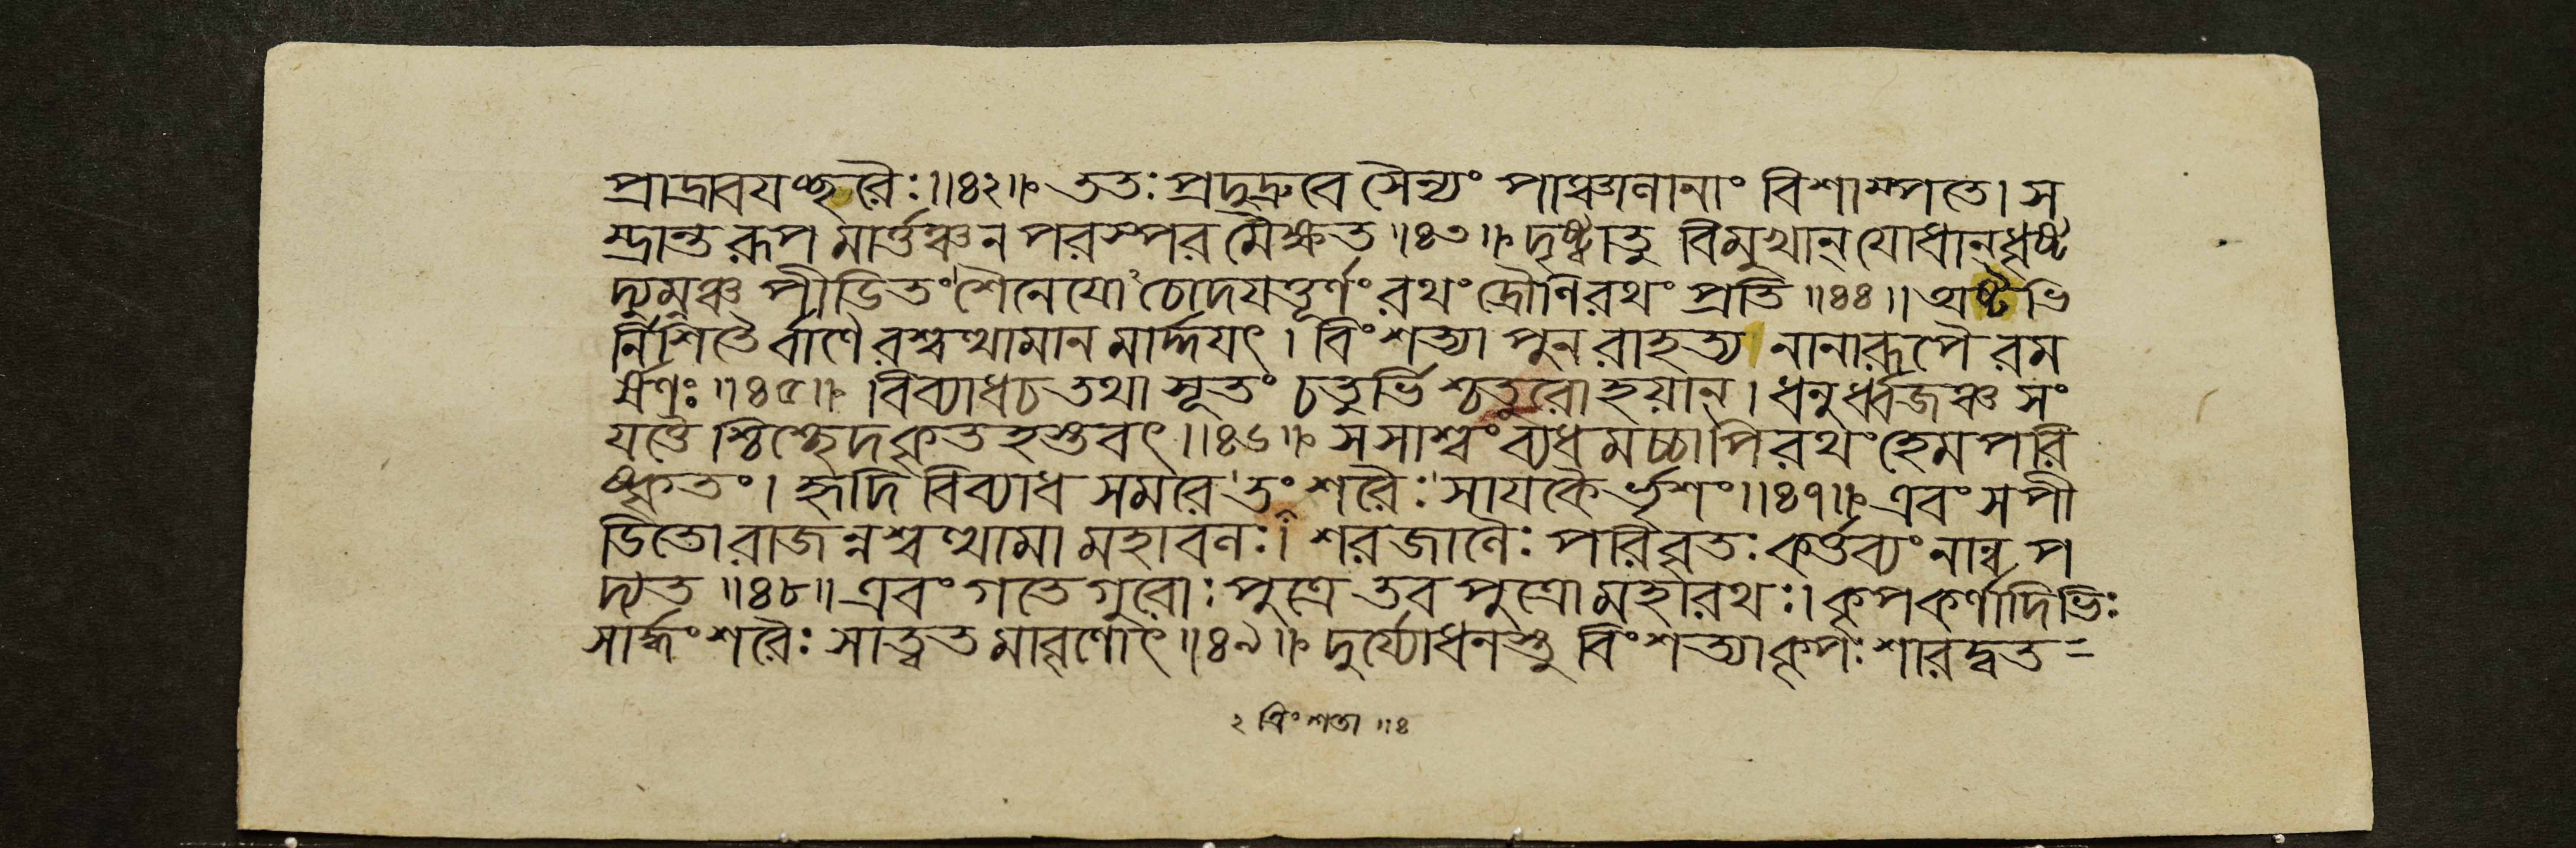 প্রাদ্রাবযচ্ছরৈঃ॥৪২॥ ততঃ প্রদুদ্রুবে সৈন্যং পাঞ্চালানাং বিশাম্পতে। স
ম্ভ্রান্তরূপমার্ত্তঞ্চ ন পরস্পরমৈক্ষত॥৪৩॥ দৃষ্ট্বা তু বিমুখান্ যোধান্ ধৃষ্ট
দ্যুম্নঞ্চ পীডিতং শৈনেযোঽচোদযত্তূর্ণং রথং দ্রৌণিরথং প্রতি॥৪৪॥ অষ্টভি
র্নিশিতৈর্বাণৈরশ্বত্থামানমার্দ্দযৎ। বিংশত্যা পুনরাহত্য নানারূপৈরম
র্ষণঃ॥৪৫॥ বিব্যাধ চ তথা সূতং চতুর্ভিশ্চতুরো হয়ান্। ধনুর্ধ্বজঞ্চ সং
যত্তৈশ্চিচ্ছেদ কৃতহস্তবৎ॥৪৬॥ স সাশ্বং ব্যধমচ্চাপি রথং হেমপরি
ষ্কৃতং। হৃদি বিব্যাধ সমরে তং শরৈঃ সাযকৈর্ভৃশং॥৪৭॥ এবং স পী
ডিতো রাজন্নশ্বত্থামা মহাবলঃ। শরজালৈঃ পরিবৃতঃ কর্ত্তব্যং নান্বপ
দ্যত॥৪৮॥ এবং গতে গুরোঃ পুত্রে তব পুত্রো মহারথঃ। কৃপকর্ণাদিভিঃ
সার্দ্ধং শরৈঃ সাত্বতমাবৃণোৎ॥৪৯॥ দুর্য্যোধনস্তু বিংশত্যা কৃপঃ শারদ্বত=
২ ত্রিংশতা॥৪